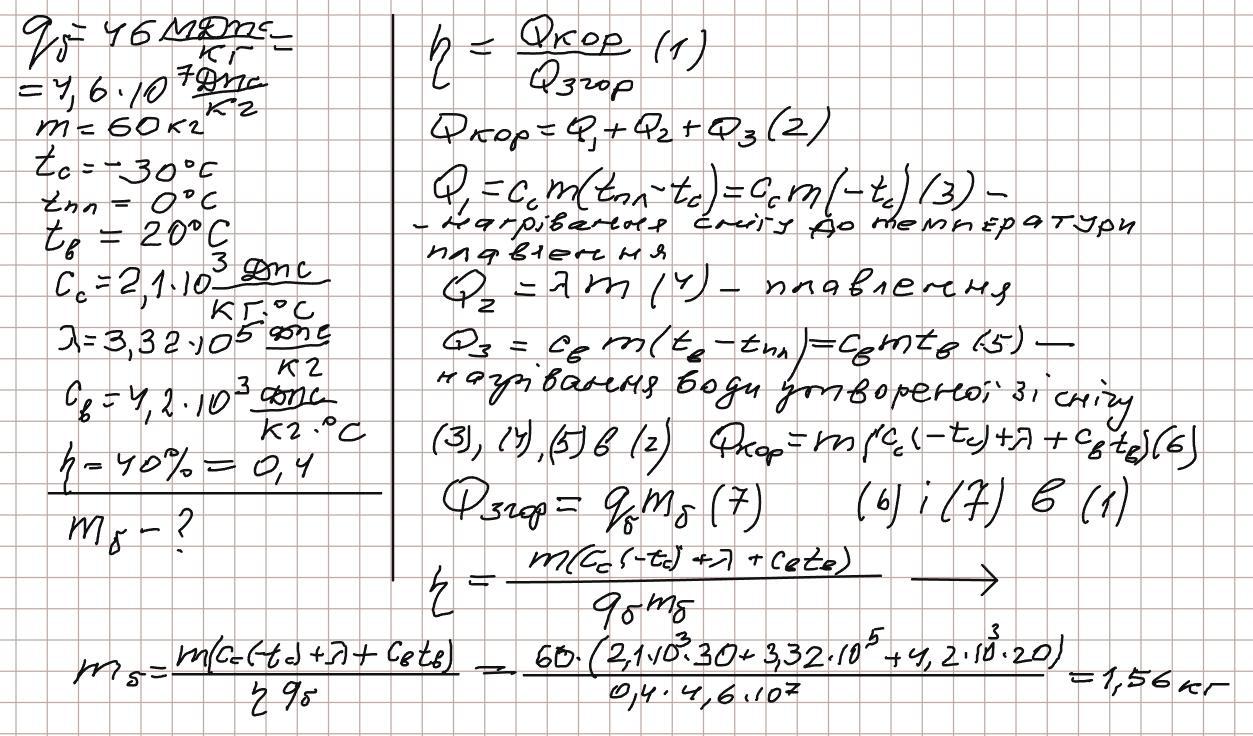 q_б = 46 МДж/кг =
= 4,6·10⁷ Дж/кг
m = 60 кг
t_с = -30°C
t_пл = 0°C
t_в = 20°C
c_с = 2,1·10³ Дж/кг·°C
λ = 3,32·10⁵ Дж/кг
c_в = 4,2·10³ Дж/кг·°C
η = 40% = 0,4
m_б - ?
η = Q_кор/Q_згор (1)
Q_кор = Q₁ + Q₂ + Q₃ (2)
Q₁ = c_с m(t_пл - t_с) = c_с m(-t_с) (3) -
- нагрівання снігу до температури
плавлення
Q₂ = λm (4) - плавлення
Q₃ = c_в m(t_в - t_пл) = c_в m t_в (5) —
нагрівання води утвореної зі снігу
(3), (4), (5) в (2) Q_кор = m(c_с(-t_с) + λ + c_в t_в) (6)
Q_згор = q_б m_б (7) (6) і (7) в (1)
η = m(c_с(-t_с) + λ + c_в t_в)/q_б m_б →
m_б = m(c_с(-t_с) + λ + c_в t_в)/η q_б = 60·(2,1·10³·30 + 3,32·10⁵ + 4,2·10³·20)/0,4·4,6·10⁷ = 1,56 кг